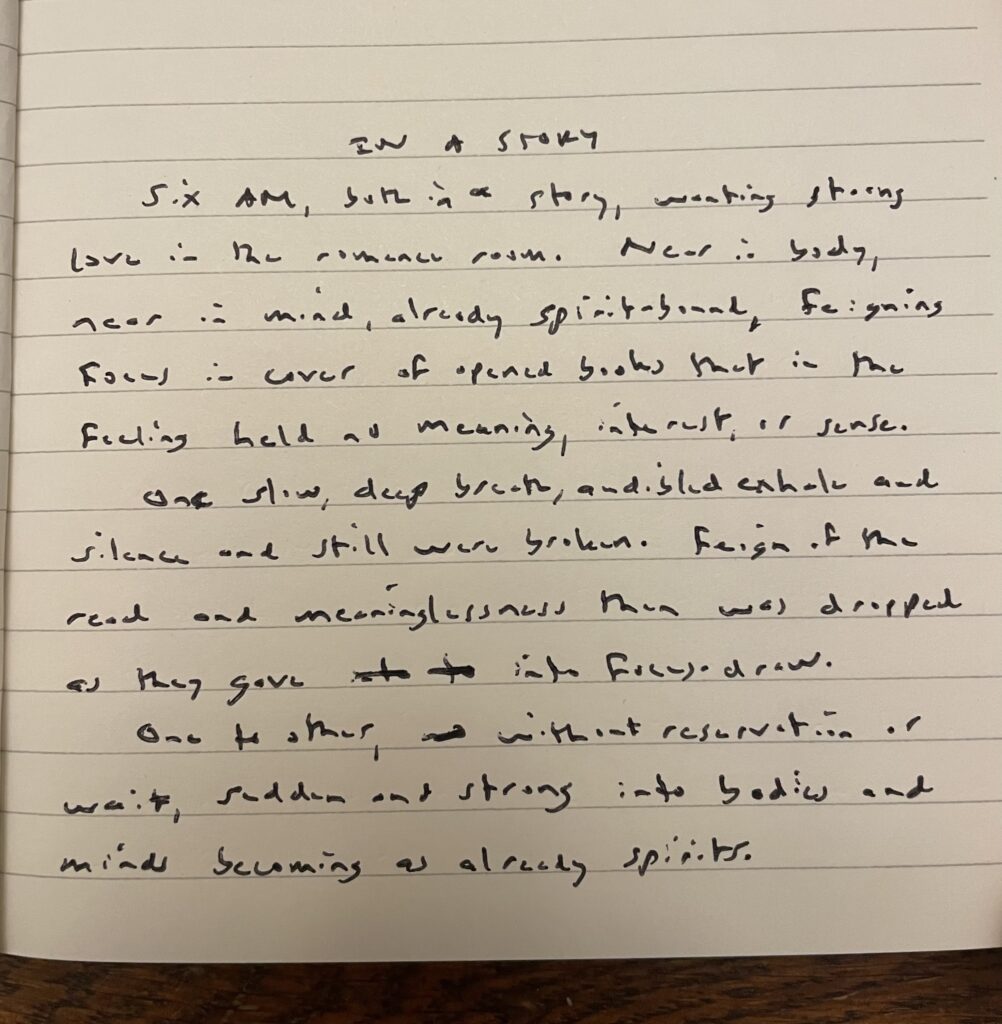 IN A STORY
Six AM, both in a story, wanting strong
love in the romance room. Near in body,
near in mind, already spirit-bound, feigning
focus in cover of opened books that in the
feeling held no meaning, interest, or sense.
One slow, deep breath, audibled exhale and
silence and still were broken. Feign of the
read and meaninglessness then was dropped
as they gave into focus-draw.
One to other, without reservation or
wait, sudden and strong into bodies and
minds becoming as already spirits.